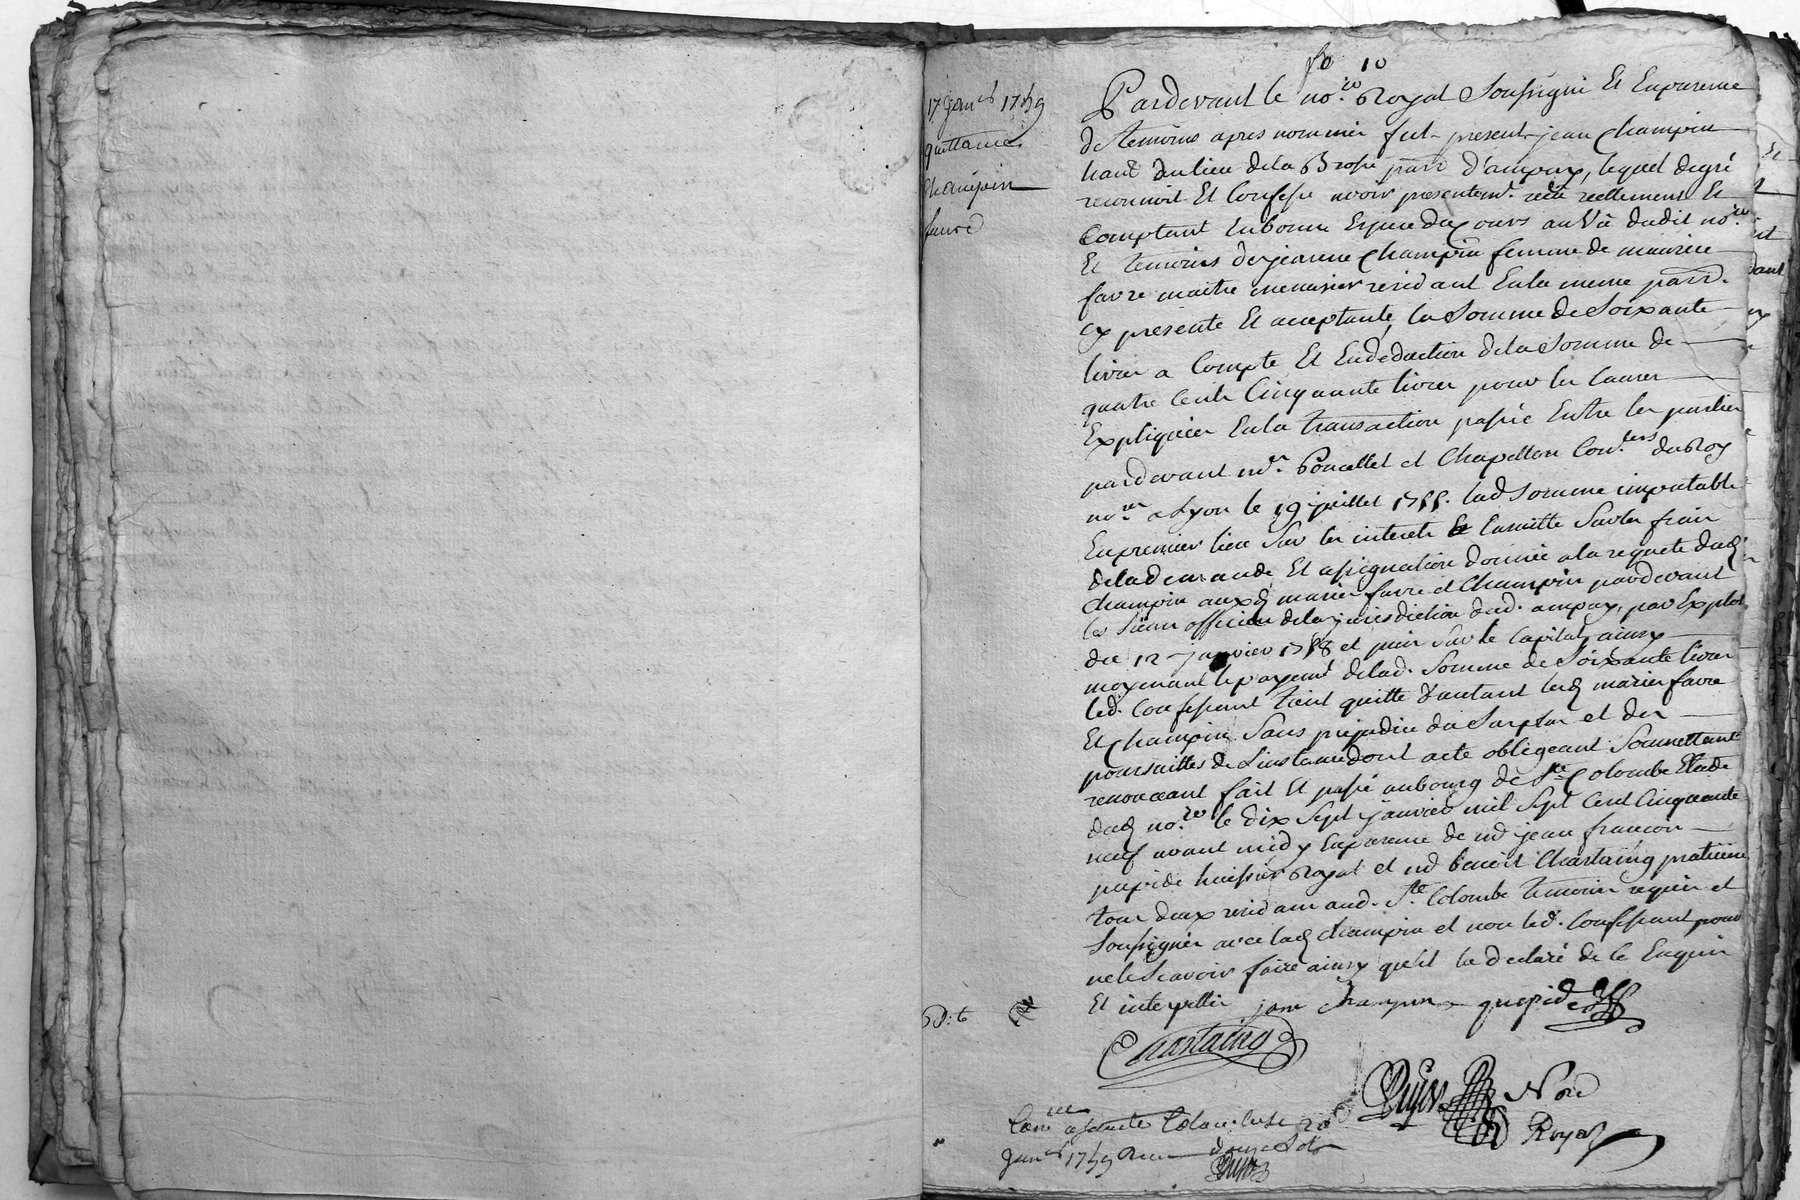 fo 10
17 janer 1759
quittance
Champin
favre
Pardevant le nore Royal Soussigné Et Enpresence
de temoins apres nommés fut present jean Champin
hant du lieu dela Brosse parr d'ampuy, lequel degré
reconnoit Et Confesse avoir presentemt reçu reellement Et
Comptant Enbonne Espece du Cours au Vû dudit nore
Et temoins de jeanne Champin femme de maurice
favre maitre menuisier residant Enla meme parr.
cy presente Et acceptante, la Somme de Soixante
livres a Compte Et Endeduction dela Somme de
quatre Cents Cinquante livres pour les Causes
Expliquées Enla transaction passée Entre les parties
pardevant mes Poncellet et Chapellon Conlers du Roy
nores a Lyon le 19 juillet 1755. lad Somme imputable
Enpremier lieu Sur les interets Et Ensuitte Sur les frais
dela demande Et assignation donnée a la requete dud
Champin auxd mariés favre et Champin pardevant
les Sieurs officiers dela jurisdiction dud. ampuy, par Exploit
du 12 janvier 1758 et puis Sur le Capital, ainsy
moyenant le payemt delad. Somme de Soixante livres
led. Confessant tient quitte d'autant lesd mariés favre
Et Champin Sans prejudice du Surplus et des
poursuittes de L'instance dont acte obligeant Soumettant
renonceant fait Et passé aubourg de Ste Colombe Etude
dud nore le dix Sept janvier mil Sept Cent Cinquante
neuf avant midy Enpresence de md jean francois
pupide huissier Royal et md benoit Chartaing praticien
tous deux residans aud. Ste Colombe temoins requis et
Soussignés avec lad Champin et non led. Confessant pour
ne le Scavoir faire ainsy qu'il la declaré de Ce Enquis
Et interpellé jane Champin
Chartaing
Dujas Nore
Royal
Conlé a Ste Colombe le 20
janer 1759 Recu douze Sols
Dujas